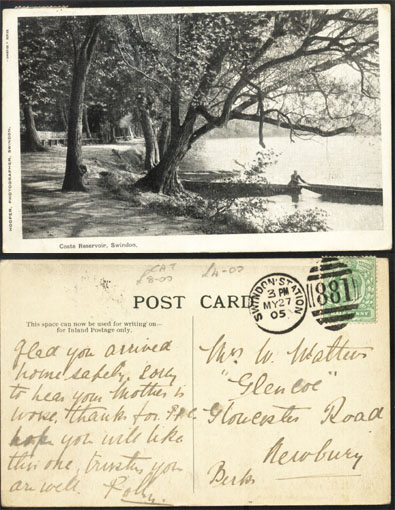 HOOPER, PHOTOGRAPHER, SWINDON.
Coate Reservoir, Swindon.
£4-00
POST CARD
This space can now be used for writing on—
for Inland Postage only.
SWINDON STATION
3 PM
MY 27
05
881
Glad you arrived
home safely. Sorry
to hear your Mother is
worse, thanks for P.C.
hope you will like
this one, trusting you
are well.
Mrs W. Matthews
"Glencoe"
Gloucester Road
Newbury
Berks